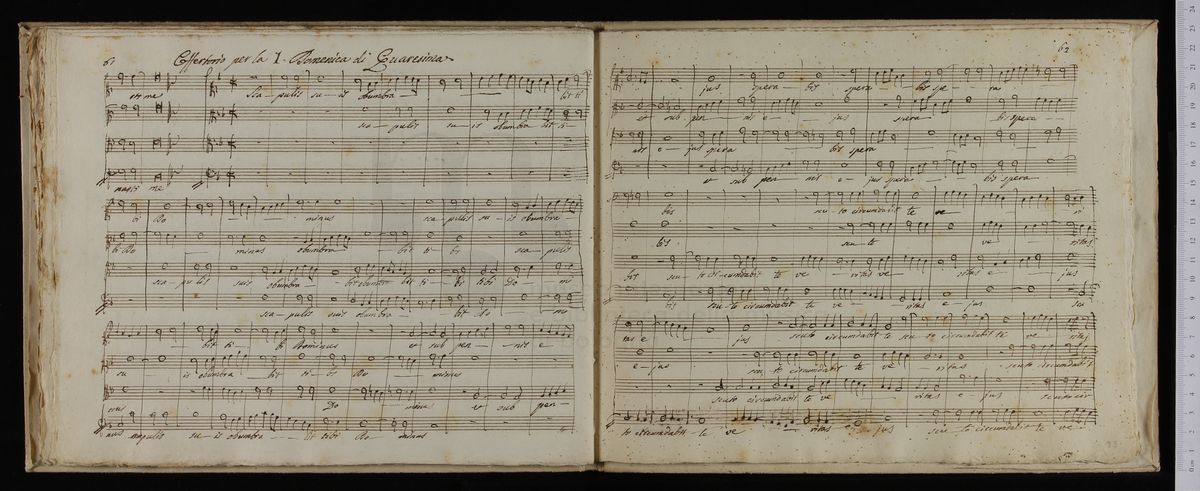 61 Offertorio per la I. Domenica di Quaresima
Sca - pulis su - is obumbra -
sca - pulis su - is obumbra bit ti -
me
bi Do - minus sca - pulis su - is obumbra -
bi Do minus obumbra bit ti - bi sca - pulis
sca - pulis suis obumbra - bit obumbra - bit ti - bi tibi Do - mi
sca - pulis suis obumbra - bit Do - mi
bit ti - bi Dominus et sub pen - nis e
su - is obumbra - bit ti - bi Do - minus
nus Do minus et sub pen -
nus scapulis su - is obumbra - bit tibi Do - minus
62
jus spera - bit spera - bit spe - ra
et sub pen - nis e - jus spera - bit spera -
nis e - jus spera - bit spera
et sub pen - nis e - jus spera - bit spera
bit scu - to circumdabit te ve -
bit scu - to ve - ritas
bit scu - to cir - cumdabit te ve - ritas ve - ritas e - jus
bit scu - to circumdabit te ve - ritas e - jus scu
tas e - jus scuto circumdabit te scu - to circumdabit te ve ritas
e - jus scu - to circumdabit te ve - ritas scuto circumdabit
scuto circumdabit te ve - ritas e - jus
to circumdabit te ve - ritas e - jus scu - to circumdabit te ve -